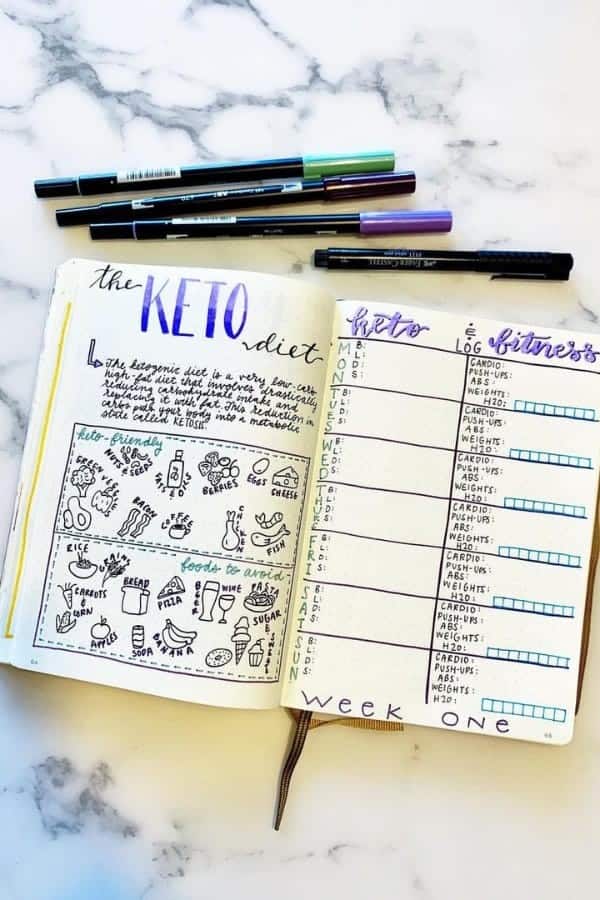 the
KETO
diet
The ketogenic diet is a very low-carb
high-fat diet that involves drastically
reducing carbohydrate intake and
replacing it with fat. This reduction in
carbs puts your body into a metabolic
state called KETOSIS.
keto-friendly
GREEN VEGGIES
NUTS & SEEDS
FATS & OILS
BERRIES
EGGS
CHEESE
BACON
COFFEE
CHICKEN
FISH
foods to avoid
RICE
GRAINS
CARROTS
&
CORN
BREAD
PIZZA
BEER
WINE
PASTA
APPLES
SODA
BANANA
SUGAR
64
keto
&
LOG
fitness
MON
B:
L:
D:
S:
CARDIO:
PUSH-UPS:
ABS:
WEIGHTS:
H2O:
TUES
B:
L:
D:
S:
CARDIO:
PUSH-UPS:
ABS:
WEIGHTS:
H2O:
WED
B:
L:
D:
S:
CARDIO:
PUSH-UPS:
ABS:
WEIGHTS:
H2O:
THUR
B:
L:
D:
S:
CARDIO:
PUSH-UPS:
ABS:
WEIGHTS:
H2O:
FRI
B:
L:
D:
S:
CARDIO:
PUSH-UPS:
ABS:
WEIGHTS:
H2O:
SAT
B:
L:
D:
S:
CARDIO:
PUSH-UPS:
ABS:
WEIGHTS:
H2O:
SUN
B:
L:
D:
S:
CARDIO:
PUSH-UPS:
ABS:
WEIGHTS:
H2O:
WEEK ONE
65
FABER-CASTELL